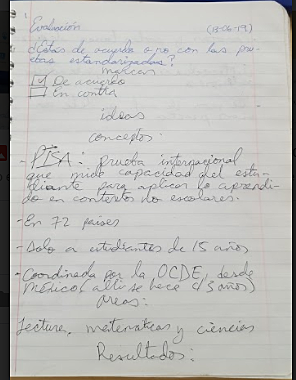 Evaluación (18-06-19)
¿Estás de acuerdo o no con las prue-
bas estandarizadas?
marcas
De acuerdo
En contra
ideas
conceptos.
- PISA: prueba internacional
que mide capacidad del estu-
diante para aplicar lo aprendi-
do en contextos no escolares.
- En 72 países
- Solo a estudiantes de 15 años
- Coordinada por la OCDE, desde
México( allí se hace c/3 años)
Áreas:
Lectura, matemáticas y ciencias
Resultados: